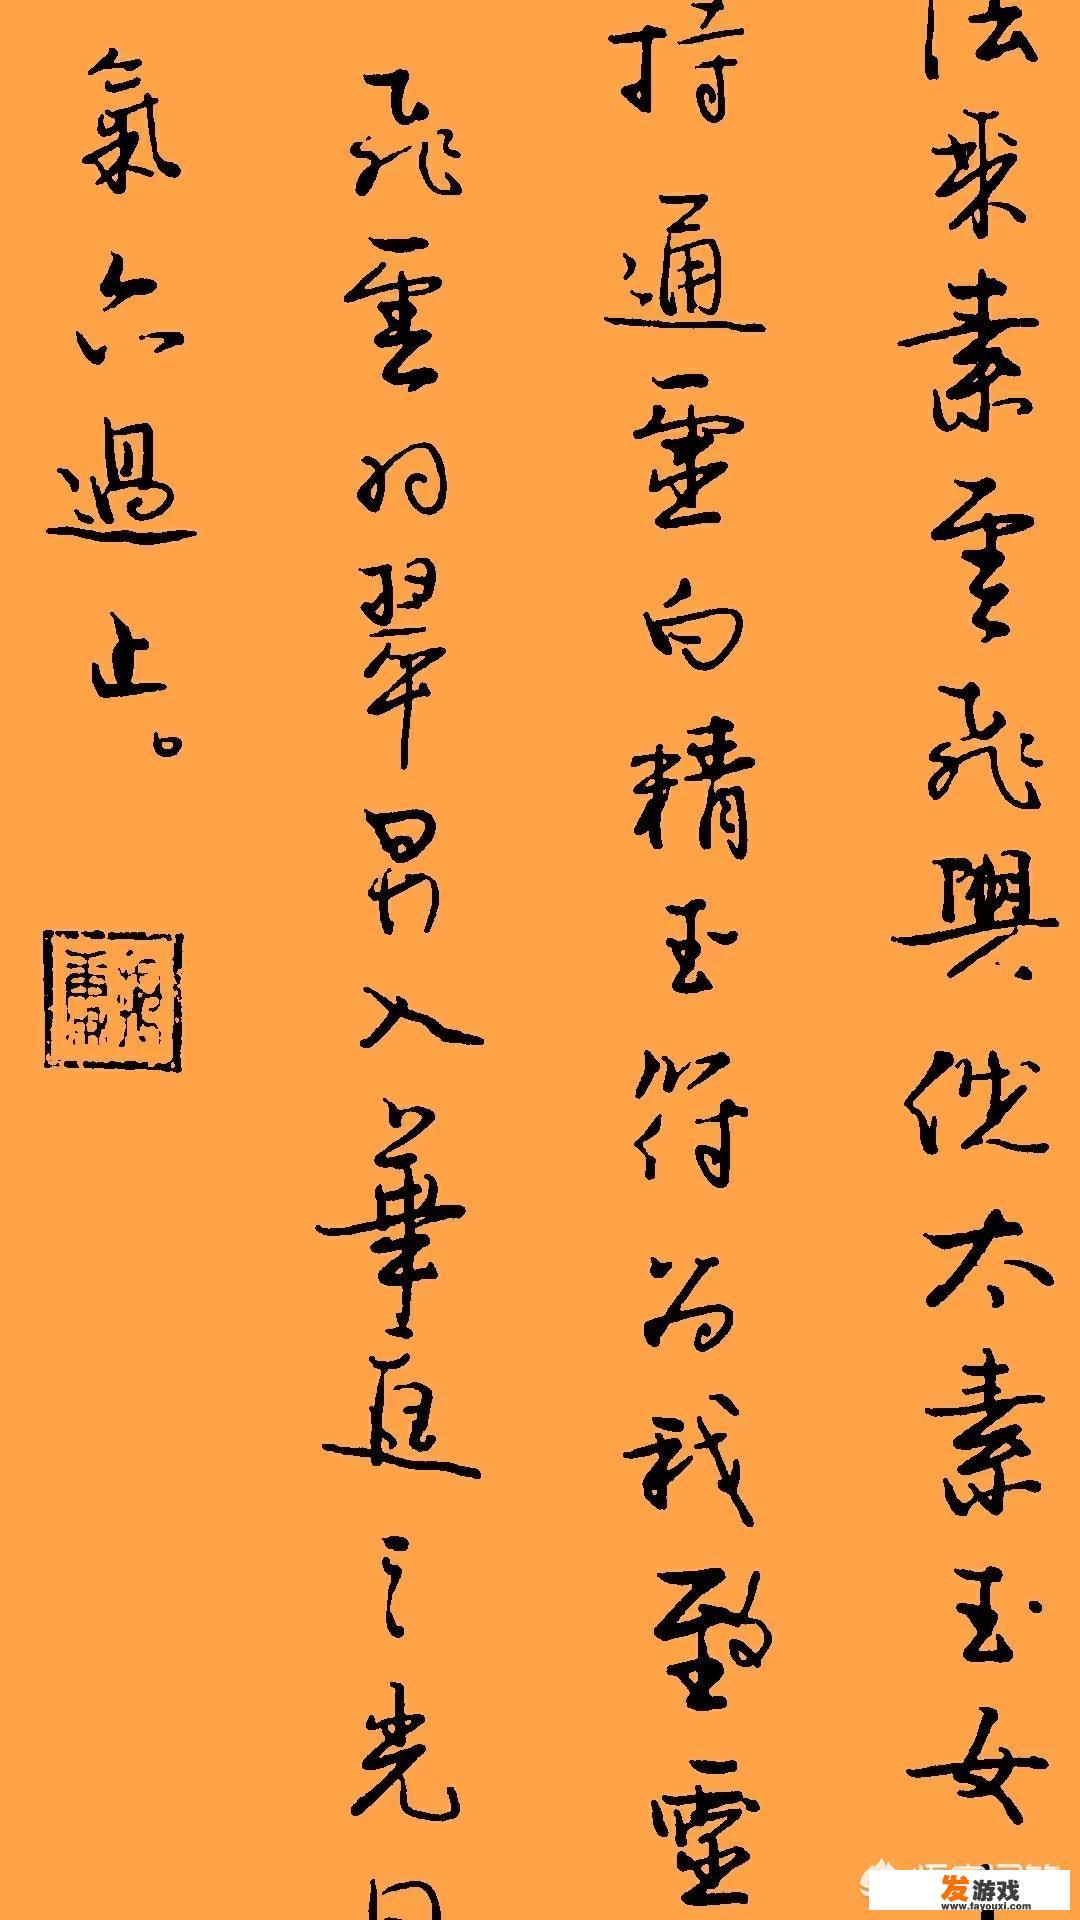 法乘素雲飛輿從太素玉女
持通靈白精玉符為我致靈
飛雲羽翠昇入華庭之光
氣六過止。
发游戏
www.fayouxi.com